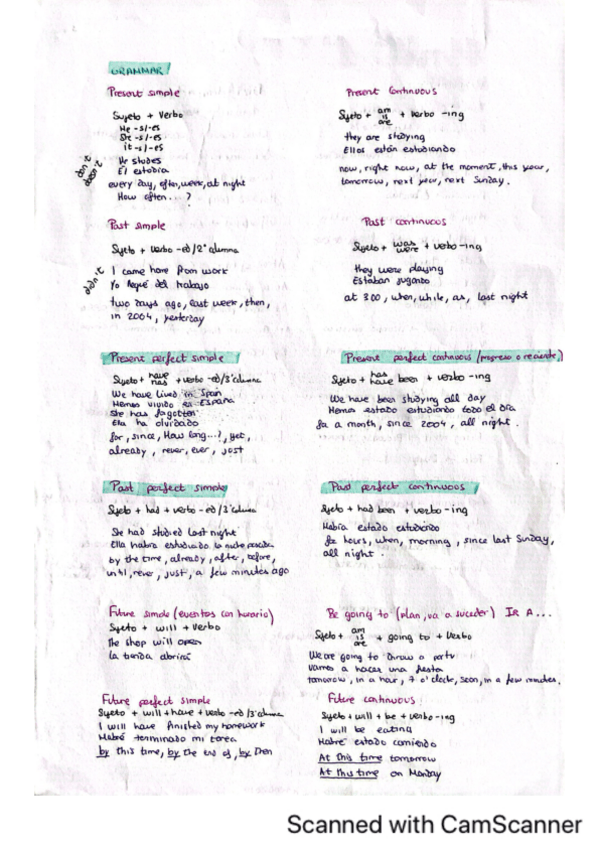 GRAMMAR
Present simple
Sujeto + Verbo
He -s/-es
She -s/-es
it -s/-es
don't
doesn't
He studes
El estudia
every day, often, week, at night
How often...?
Present Continuous
Sujeto + am is are + verbo -ing
they are studying
Ellos están estudiando
now, right now, at the moment, this year,
tomorrow, next year, next Sunday.
Past simple
Sujeto + verbo -ed/2ª columna
didn't
I came home from work
Yo llegué del trabajo
two days ago, last week, then,
in 2004, yesterday
Past continuous
Sujeto + was were + verbo -ing
they were playing
Estaban jugando
at 3:00, when, while, as, last night
Present perfect simple
Sujeto + have has + verbo -ed/3ª columna
We have lived in Spain
Hemos vivido es España
She has forgotten
Ella ha olvidado
for, since, How long...?, yet,
already, never, ever, just
Present perfect continuous (progreso o reciente)
Sujeto + has have been + verbo -ing
We have been studying all day
Hemos estado estudiando todo el día
for a month, since 2004, all night.
Past perfect simple
Sujeto + had + verbo -ed/3ª columna
She had studied last night
Ella había estudiado la noche pasada
by the time, already, after, before,
until, never, just, a few minutes ago
Past perfect continuous
Sujeto + had been + verbo -ing
Había estado estudiando
for hours, when, morning, since last Sunday,
all night.
Future simple (eventos con horario)
Sujeto + will + verbo
The shop will open
la tienda abrirá
Be going to (plan, va a suceder) IR A...
Sujeto + am is are + going to + Verbo
We are going to throw a party
Vamos a hacer una fiesta
tomorrow, in a hour, 7 o'clock, soon, in a few minutes.
Future perfect simple
Sujeto + will + have + verbo -ed/3ª columna
I will have finished my homework
Habré terminado mi tarea
by this time, by the end of, by then
Future continuous
Sujeto + will + be + verbo -ing
I will be eating
Habré estado comiendo
At this time tomorrow
At this time on Monday
Scanned with CamScanner